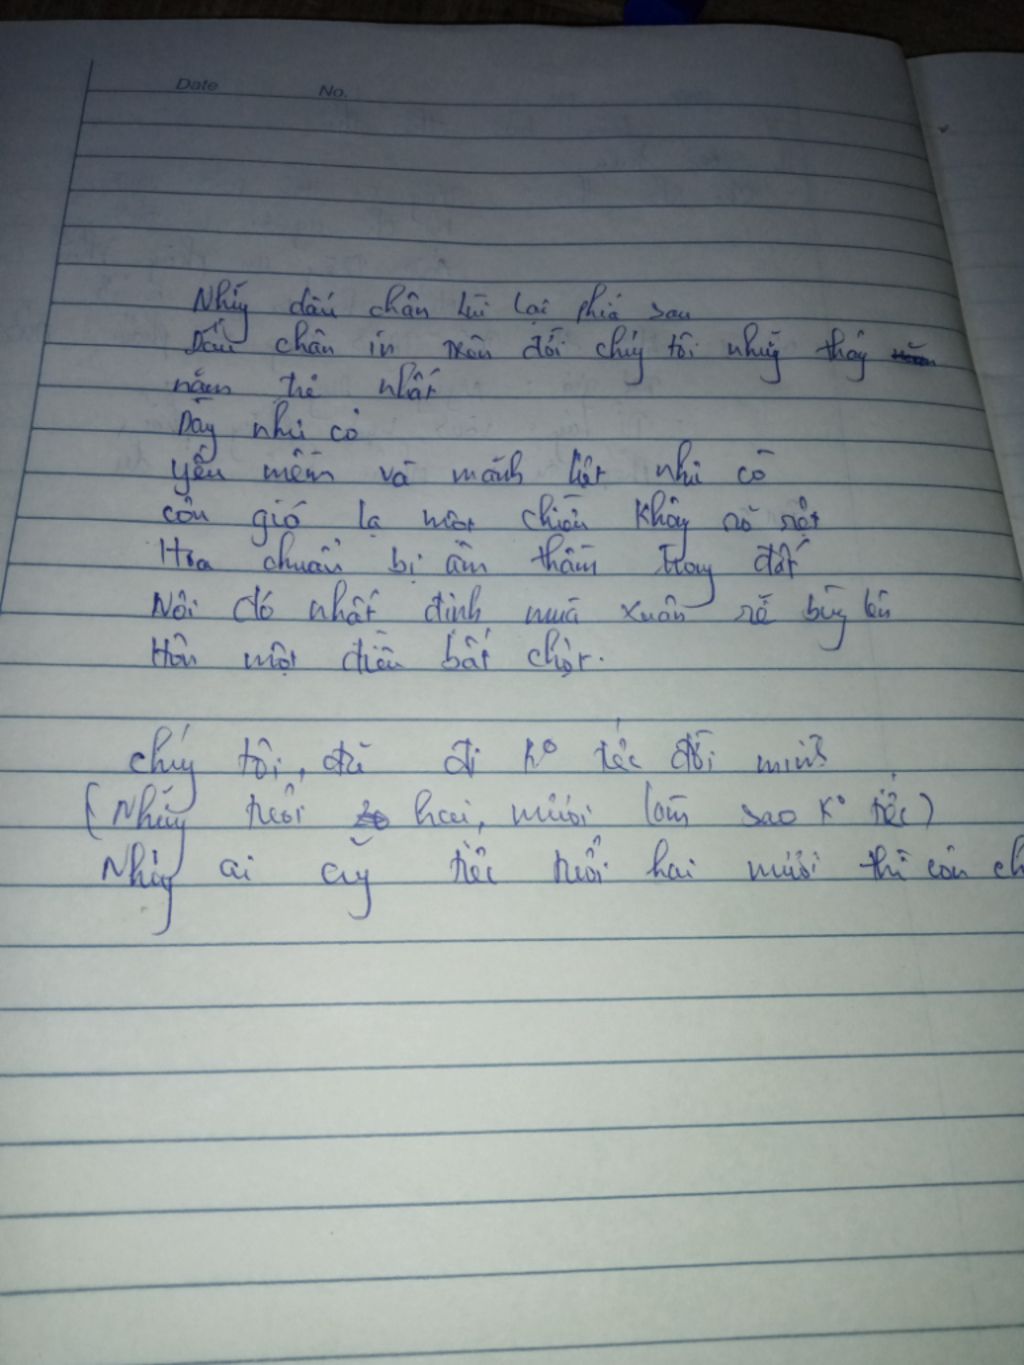 Date No.
Những dấu chân lùi lại phía sau
Dấu chân in trên đời chúng tôi những tháng
năm trẻ nhất
Dày như cỏ
yếu mềm và mãnh liệt như cỏ
cơn gió lạ một chiều không rõ rệt
Hoa chuẩn bị âm thầm trong đất
Nơi đó nhất định mùa xuân sẽ bùng lên
Hơn một điều bất chợt.
chúng tôi, đã đi ko tiếc đời mình
(Những tuổi hai, mươi làm sao ko tiếc)
Nhưng ai cũng tiếc tuổi hai mươi thì còn